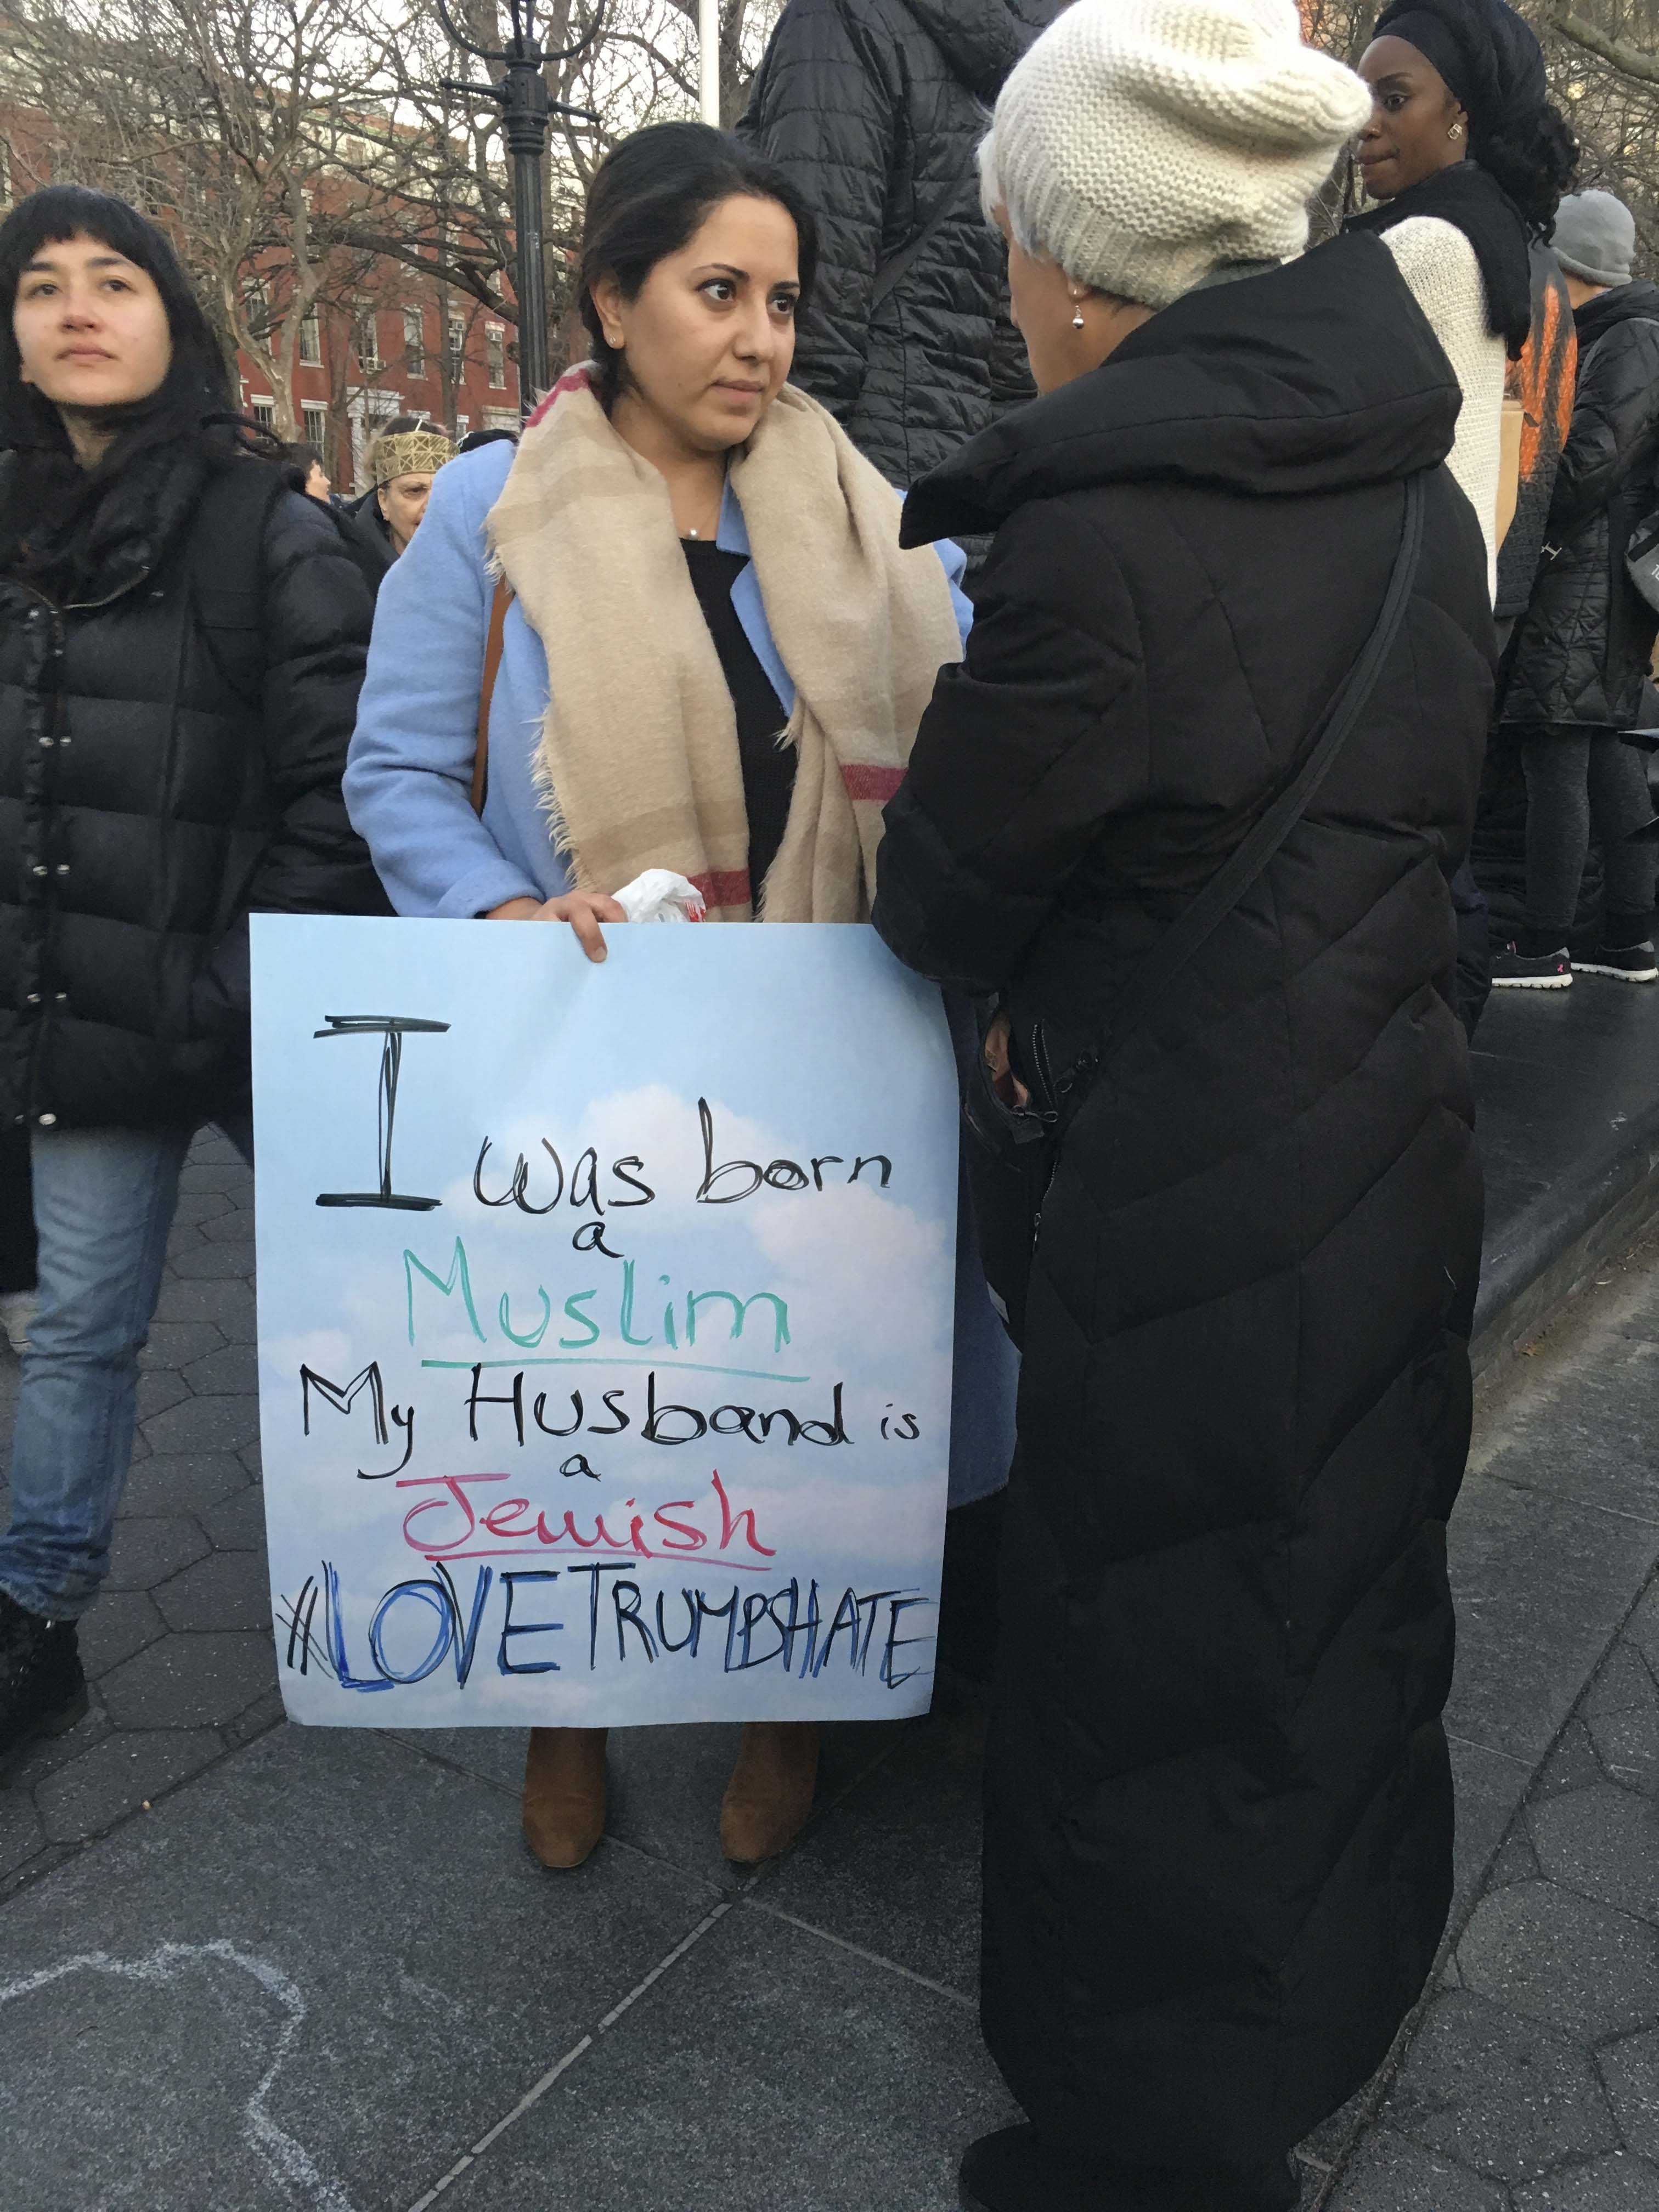 I was born
a
Muslim
My Husband is
a
Jewish
#LOVETRUMPSHATE